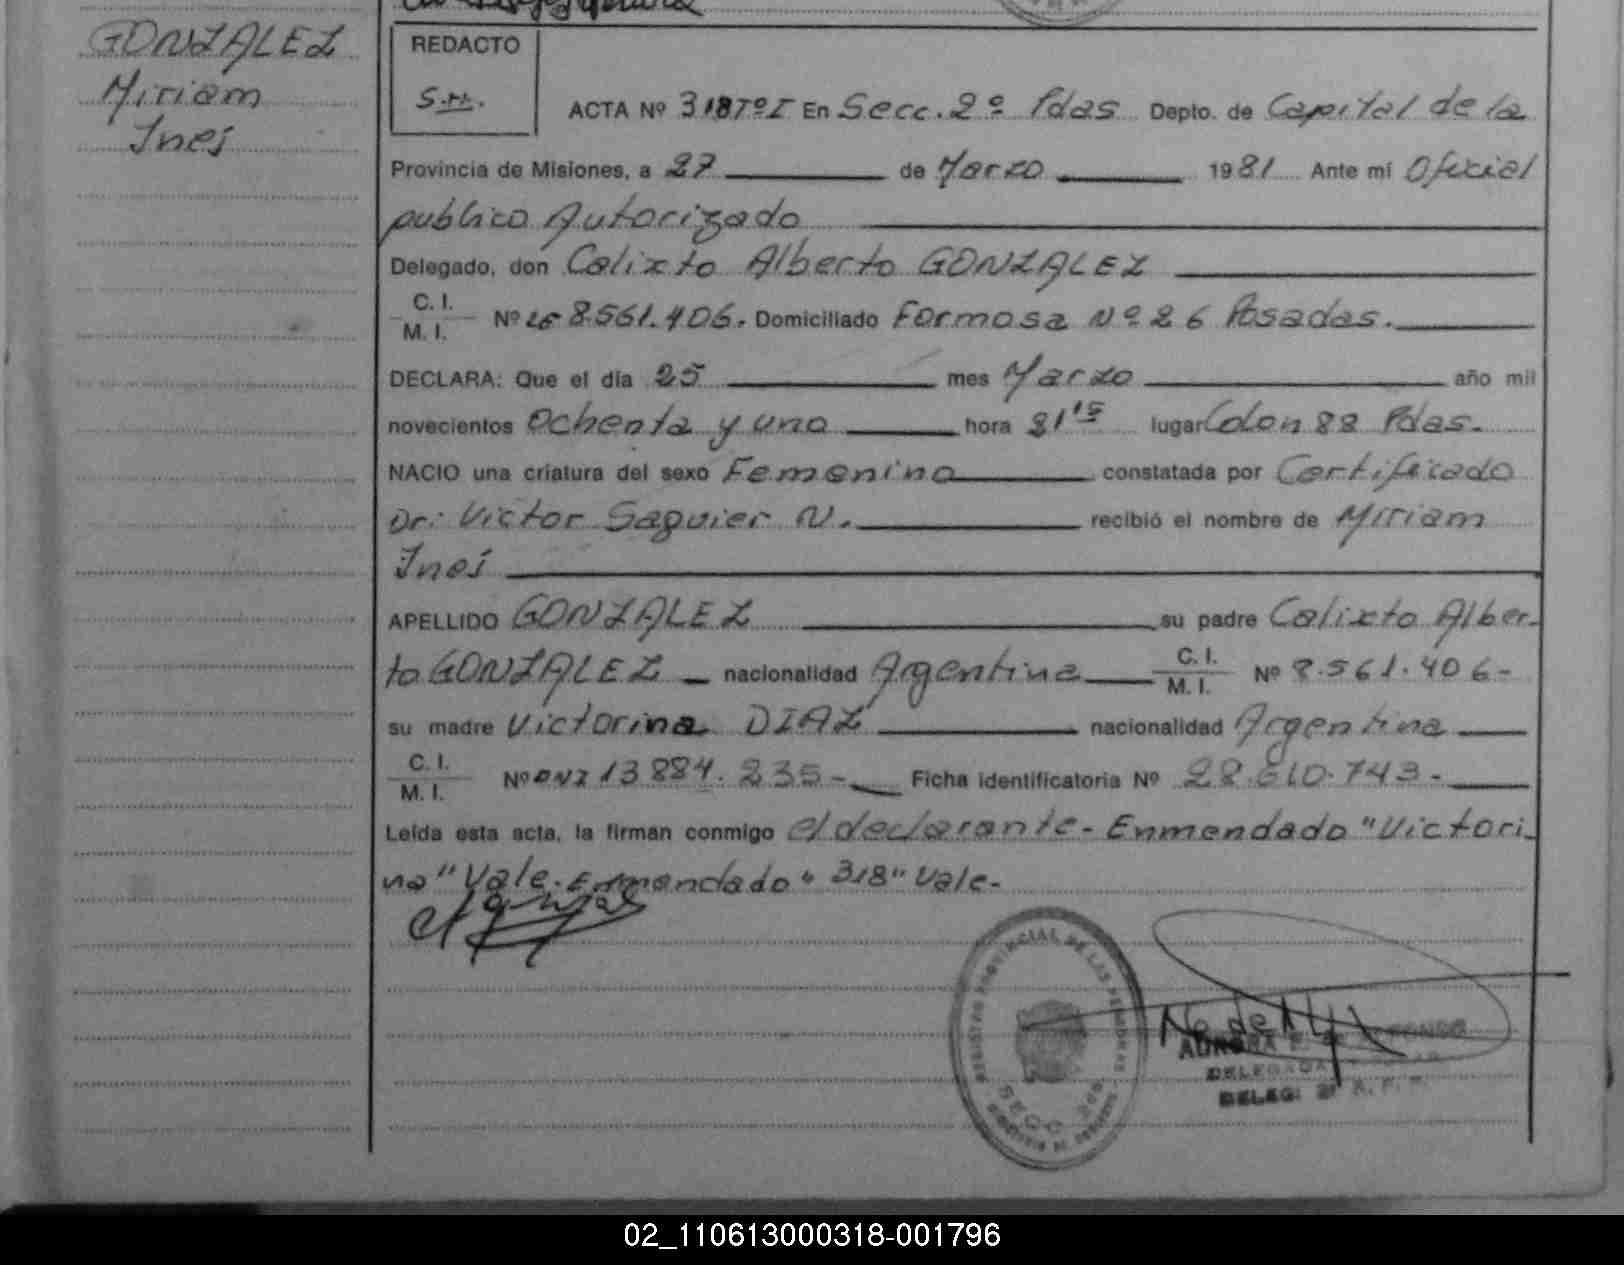 GONZALEZ
Miriam
Ines
REDACTO
S.M.
ACTA Nº 318 Tº I En Secc. 2º Pdas Depto. de Capital de la
Provincia de Misiones, a 27 de Marzo 1981 Ante mí Oficial
publico Autorizado
Delegado, don Calixto Alberto GONZALEZ
C. I.
M. I. Nº LE 8.561.406. Domiciliado Formosa Nº 26 Posadas.
DECLARA: Que el día 25 mes Marzo año mil
novecientos Ochenta y uno hora 21 15 lugar Colon 22 Pdas.
NACIO una criatura del sexo Femenino constatada por Certificado
Dr: Victor Saguier N. recibió el nombre de Miriam
Ines
APELLIDO GONZALEZ su padre Calixto Alber-
to GONZALEZ nacionalidad Argentina C. I.
M. I. Nº 8.561.406-
su madre Victorina DIAZ nacionalidad Argentina
C. I.
M. I. Nº DNI 13.884.235- Ficha identificatoria Nº 28.610.743-
Leída esta acta, la firman conmigo el declarante- Enmendado "Victori-
na" Vale. Enmendado "318" Vale-
REGISTRO PROVINCIAL DE LAS PERSONAS
SECC. 2da
DELEGADA
DELEG. 2ª
02_110613000318-001796